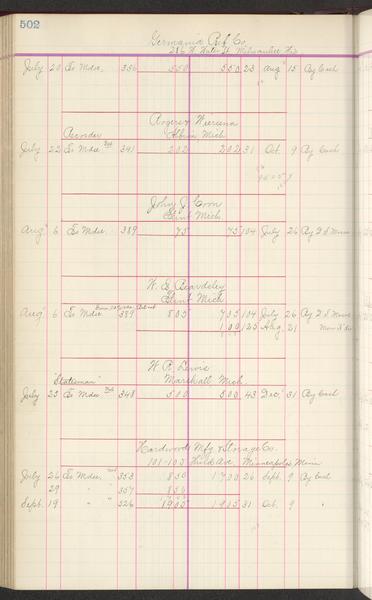 502
Germania Pub. Co.
286 W. Water St. Milwaukee Wis
July 20 To Mdse. 336 550 550 23 Aug 15 By Cash
Rogers &
Recorder Albion, Mich
July 22 To Mdse 341 202 202 31 Oct. 9 By Cash
John J. Coon
Flint Mich.
Aug 6 To Mdse. 389 75 75 104 July 26 By
W. E. Beardsley
Flint Mich
Aug 6 To Mdse 389 835 735 104 July 26 By
100 125 Aug. 21
W. R. Lewis
"Statesman" Marshall Mich.
July 23 To Mdse 348 500 500 43 Dec. 31 By Cash
Hardwood Mfg & Storage Co.
101-105 Ave. Minneapolis Minn
July 26 To Mdse. 353 850 1700 26 Sept. 9 By Cash
29 " " 357 850
Sept. 19 " " 526 1905 1905 31 Oct. 9 "